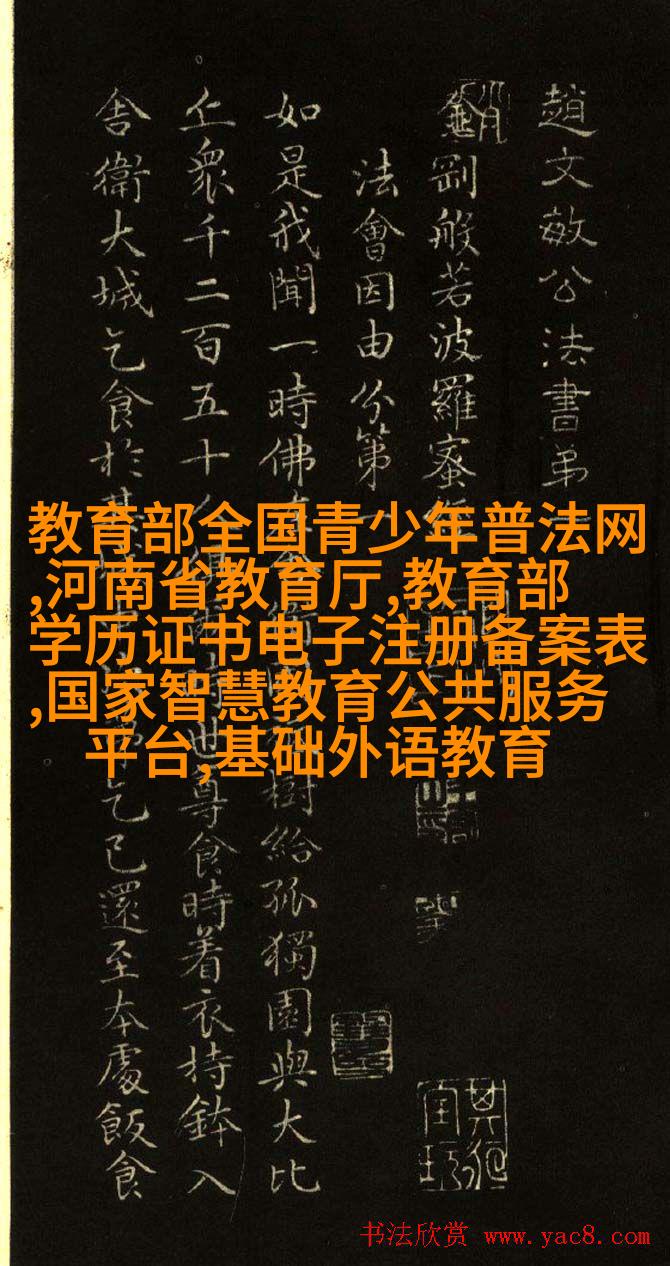 趙文敏公法書弟
金剛般若波羅蜜經
法會因由分第一
如是我聞一時佛在舍衛國祇樹給孤獨園與大比
丘眾千二百五十人俱爾時世尊食時着衣持鉢入
舍衛大城乞食於其城中次第乞已還至本處飯食
教育部全国青少年普法网
,河南省教育厅,教育部
学历证书电子注册备案表
,国家智慧教育公共服务
平台,基础外语教育
书法欣赏 www.yac8.com